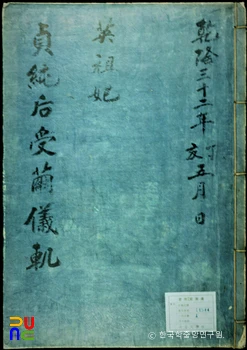 乾隆三十二年丁亥五月日
英祖妃
貞純后受繭儀軌
한국학중앙연구원